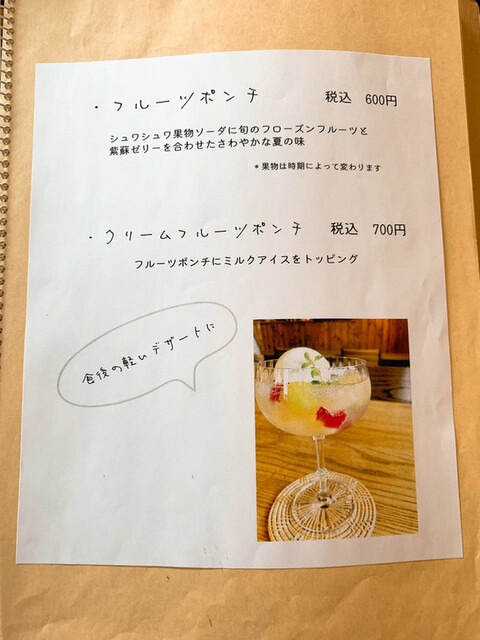 ・フルーツポンチ 税込 600円
シュワシュワ果物ソーダに旬のフローズンフルーツと
紫蘇ゼリーを合わせたさわやかな夏の味
＊果物は時期によって変わります
・クリームフルーツポンチ 税込 700円
フルーツポンチにミルクアイスをトッピング
食後の軽いデザートに